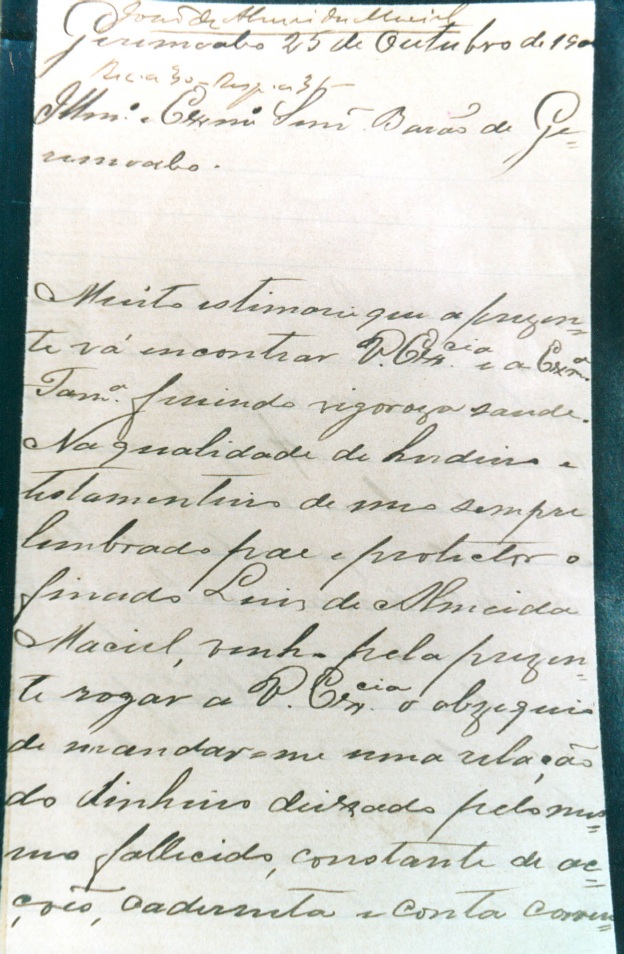 João de Almeida Maciel
Gerimoabo 25 de Outubro de 190
Rec. a 30 = Resp. a 31
Illmº. e Exmº Senr. Barão de Ge=
rimoabo.
Muito estimarei que a prezen=
te vá encontrar V. Ex.cia e a Exm.a
Fam.a fruindo vigoroza saude.
Na qualidade de herdeiro e
testamenteiro de meu sempre
lembrado pae e protector o
finado Luis de Almeida
Maciel, venho pela prezen=
te rogar a V. Ex.cia o obzequio
de mandar-me uma relação
do dinheiro deixado pelo mes=
mo fallecido, constante de ac=
ções, caderneta e conta corren=